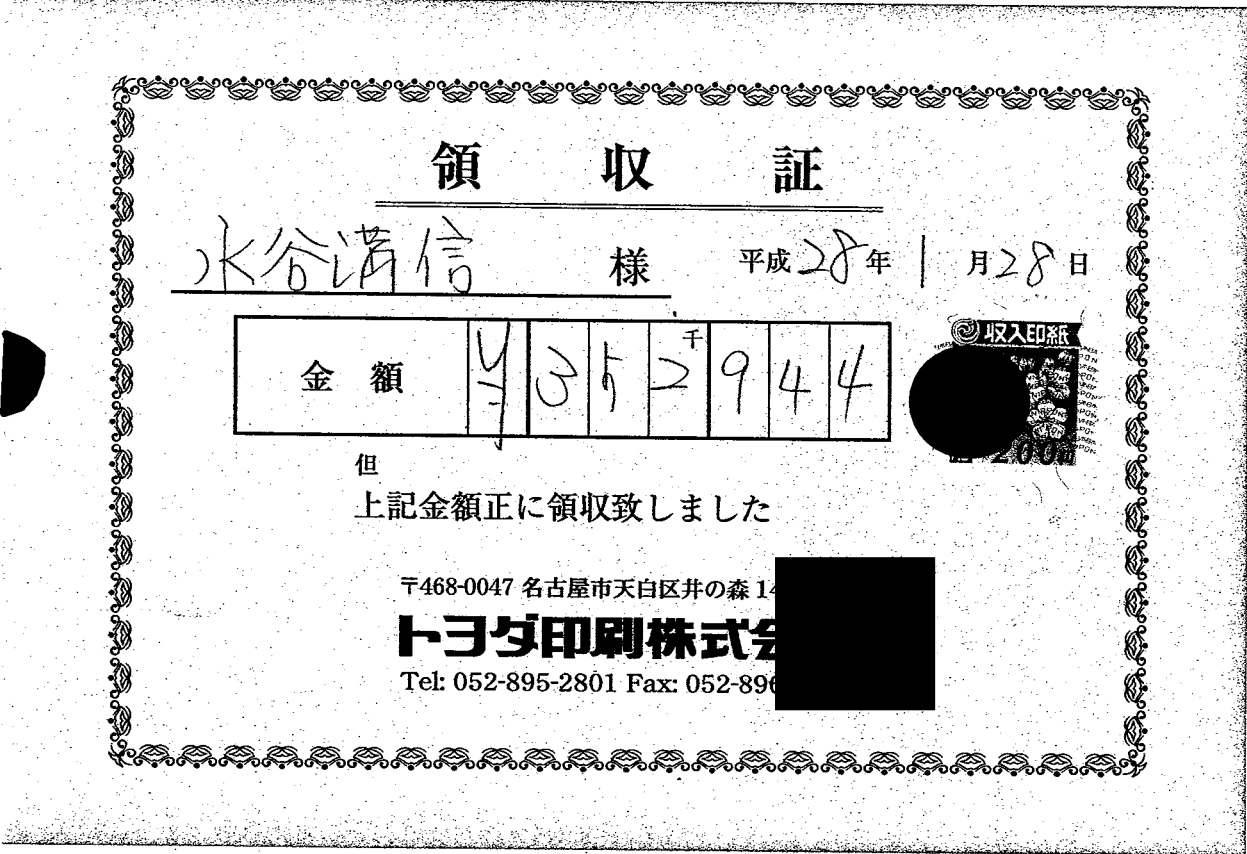 領収証
水谷満信 様 平成28年1月28日
収入印紙
金額 ¥352944
千
200円
但
上記金額正に領収致しました
〒468-0047 名古屋市天白区井の森 14
トヨダ印刷株式会
Tel: 052-895-2801 Fax: 052-896